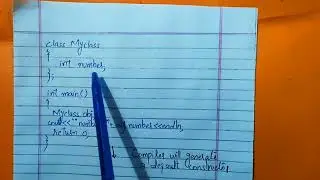 class Myclass
{
int number;
};
int main()
{
Myclass obj
cout<<"number number<<endl;
return 0;
}
Compiler will generate
a default constructor